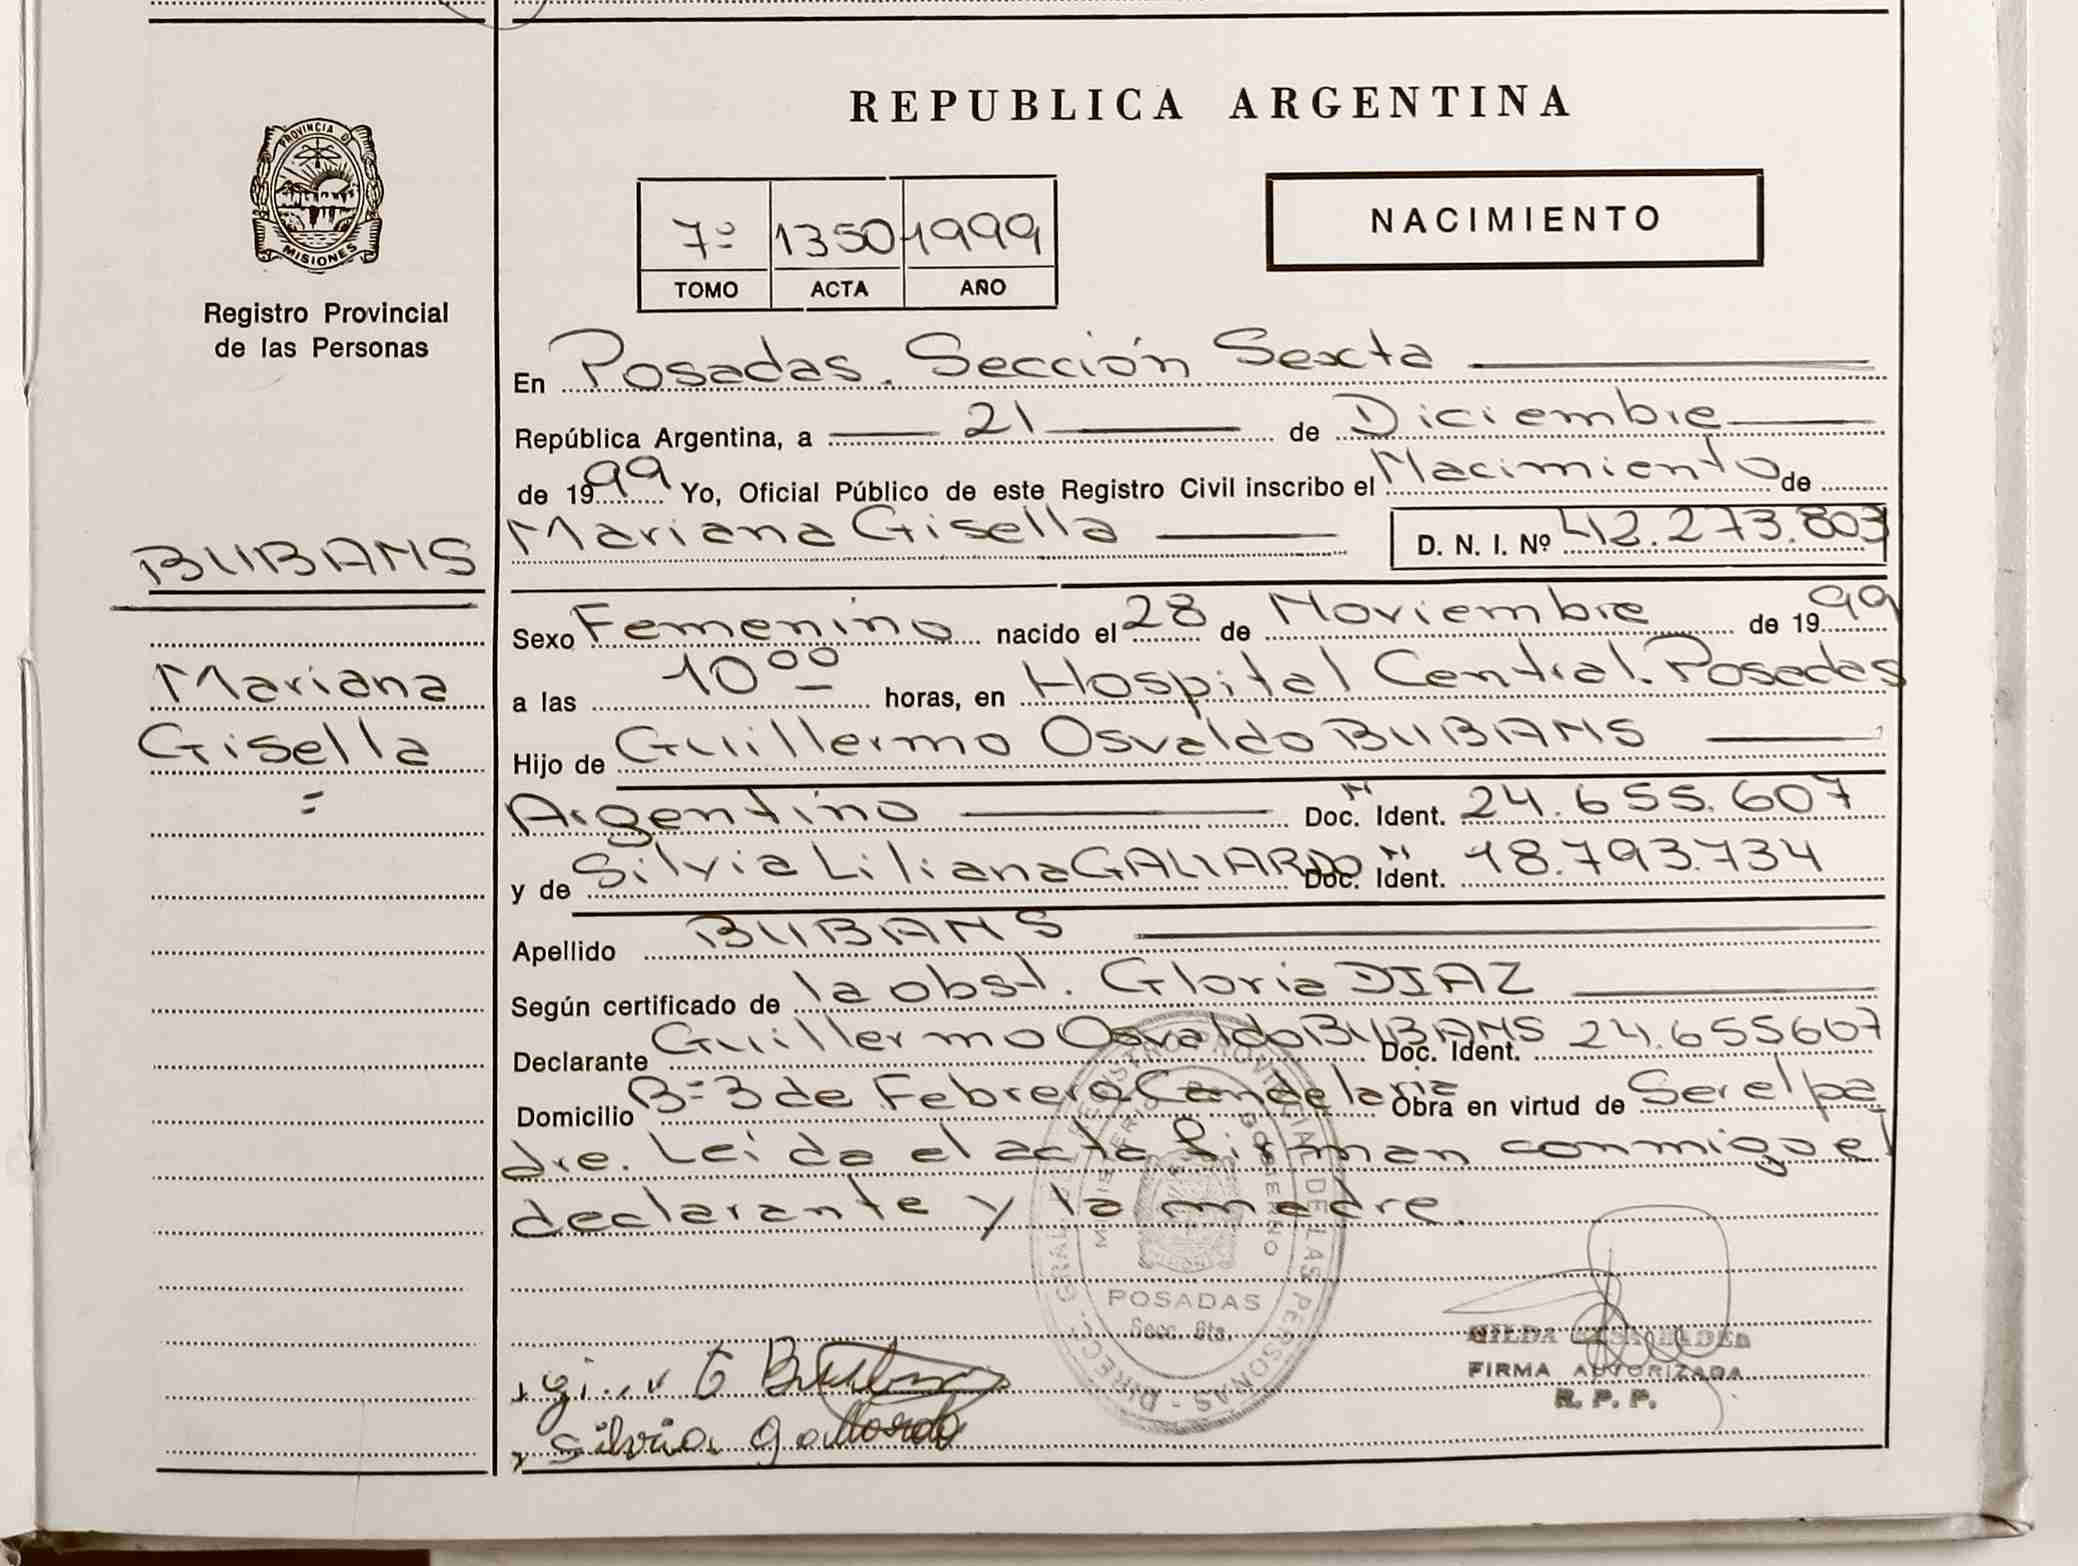 REPUBLICA ARGENTINA
PROVINCIA DE
MISIONES
Registro Provincial
de las Personas
7º 1350 1999
TOMO ACTA AÑO
NACIMIENTO
En Posadas. Sección Sexta
República Argentina, a 21 de Diciembre
de 1999 Yo, Oficial Público de este Registro Civil inscribo el Nacimiento de
BUBANS
Mariana Gisella D. N. I. Nº 42.273.803
Sexo Femenino nacido el 28 de Noviembre de 1999
Mariana
a las 10 00 horas, en Hospital Central. Posadas
Gisella
Hijo de Guillermo Osvaldo BUBANS
Argentino Doc. N Ident. 24.655.607
y de Silvia Liliana GALLARDO Doc. N Ident. 18.793.734
Apellido BUBANS
Según certificado de la obst. Gloria DIAZ
Declarante Guillermo Osvaldo BUBANS Doc. Ident. 24.655607
Domicilio Bº 3 de Febrero Candelaria Obra en virtud de Ser el pa
dre. Leida el acta firman conmigo el
declarante y la madre.
DIRECC. GRAL. DE REGISTRO PROVINCIAL DE LAS PERSONAS
MINISTERIO DE GOBIERNO
POSADAS
Secc. 6ta.
FIRMA AUTORIZADA
R. P. P.
Silvia Gallardo